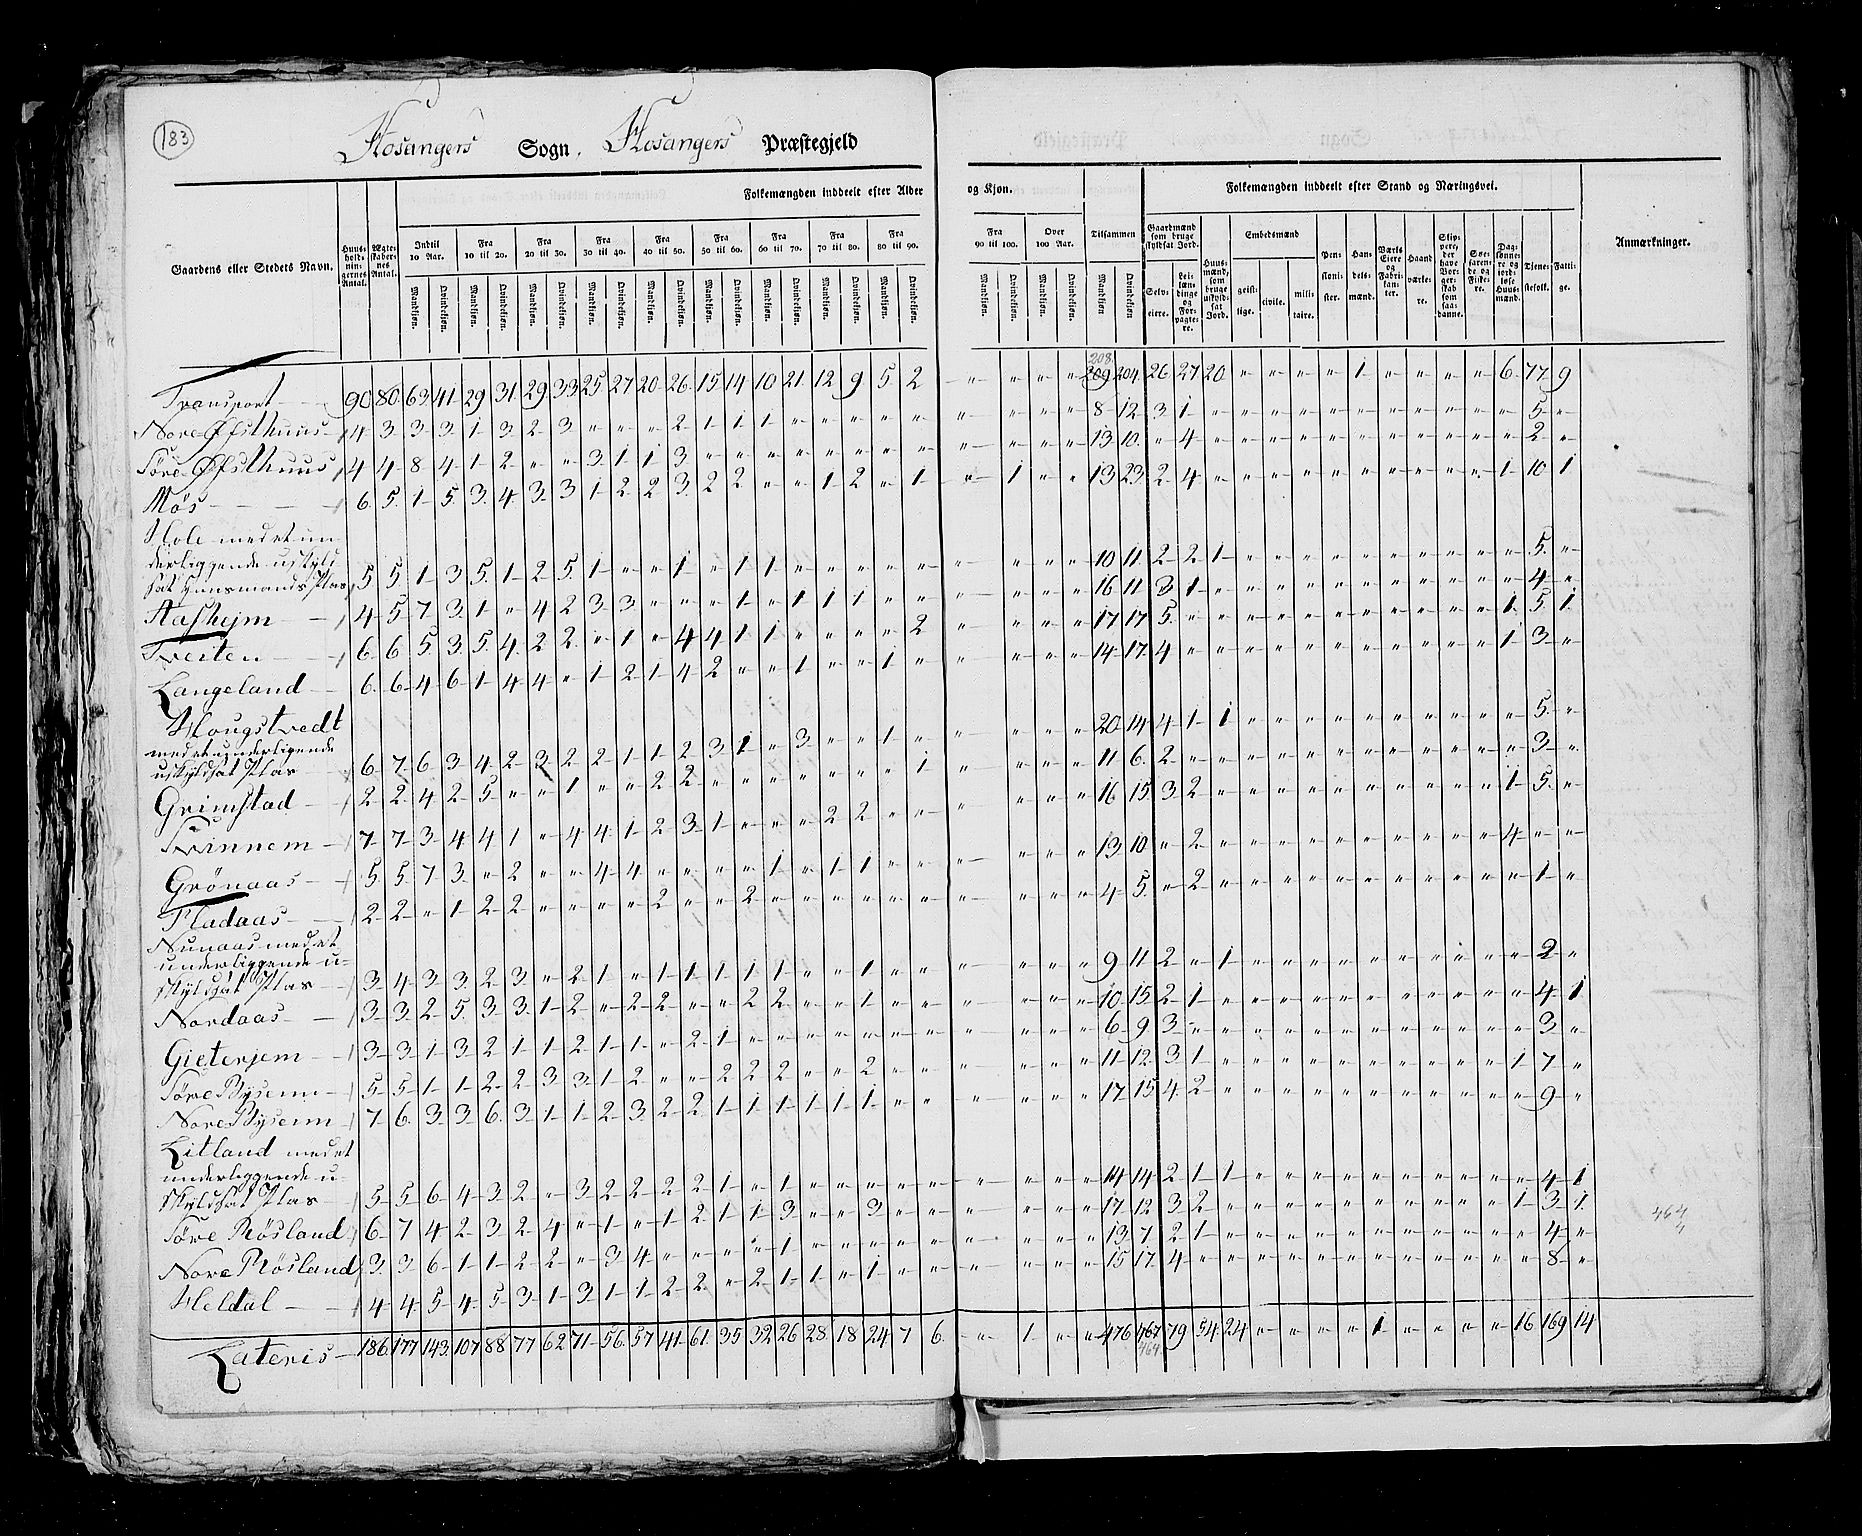 183
Hosangers Sogn, Hosangers Præstegjeld
Folkemængden inddeelt efter Alder og Kjøn.
Folkemængden inddeelt efter Stand og Næringsvei.
Gaardens eller Stedets Navn.
Huusholdningernes Antal.
Ægteskabernes Antal.
Indtil 10 Aar.
Fra 10 til 20.
Fra 20 til 30.
Fra 30 til 40.
Fra 40 til 50.
Fra 50 til 60.
Fra 60 til 70.
Fra 70 til 80.
Fra 80 til 90.
Fra 90 til 100.
Over 100 Aar.
Tilsammen
Mandkjøn. Qvindekjøn.
Gaardmænd som bruge skyldsat Jord.
Selveiere.
Leilændinge og Forpagtere.
Huusmænd, som bruge uskyldsat Jord.
Embedsmænd
geistlige. civile. militaire.
Pensionister.
Handelsmænd.
Værks Eiere og Fabrikanter.
Haandværkere.
Søefarende og Fiskere.
Tjenestefolk.
Fattige.
Anmærkninger.
Transport 90 80 63 41 29 31 29 33 25 27 20 26 15 14 10 21 12 9 5 2 " " " " 209 208 204 26 27 20 " " " " 1 " " " " 6 77 9
Nore Øfsthuus 4 3 3 3 1 3 2 3 " " " 2 1 1 1 " " " " " " " " " 8 12 3 1 " " " " " " " " " " " 5 "
Søre Øfsthuus 4 4 8 4 1 2 " " 3 1 1 3 " " " " " " " " " " " " 13 10 " 4 " " " " " " " " " " " 2 "
Møs 6 5 1 5 3 4 3 3 1 2 2 3 2 2 " " 1 2 " 1 " 1 " " 13 23 2 4 " " " " " " " " " " 1 10 1
Hole med et un
derliggende uskyld
sat Huusmands Plas 5 5 1 3 5 1 2 5 1 " " 1 " 1 1 " " " " " " " " " 10 11 2 2 1 " " " " " " " " " " 5 "
Aasheim 4 5 7 3 1 " 4 2 3 3 " " " 1 " 1 1 1 " " " " " " 16 11 3 1 " " " " " " " " " " " 4 "
Tveiten 6 6 5 3 5 4 2 2 " 1 " 4 4 1 1 " " " " 2 " " " " 17 17 5 " " " " " " " " " " " 1 5 1
Langeland 6 6 4 6 1 4 4 " 1 2 1 4 2 " " 1 " " 1 " " " " " 14 17 4 " " " " " " " " " " " 1 3 "
Hougstvedt
med et underligende
uskyldsat Plas 6 7 6 3 4 2 3 2 2 1 1 2 3 1 " 3 " " 1 " " " " " 20 14 4 1 1 " " " " " " " " " " 5 "
Grimstad 2 2 4 2 5 " " 1 " " 2 2 " " " " " " " 1 " " " " 11 6 2 " " " " " " " " " " " " 3 "
Tvinnem 7 7 3 4 4 1 " 4 4 1 2 3 1 " " " 2 2 " " " " " " 16 15 3 2 " " " " " " " " " " 1 5 "
Grönaas 5 5 7 3 " 2 " " 4 4 " " " " 1 " 1 1 " " " " " " 13 10 " 2 " " " " " " " " " " 4 " "
Fladaas 2 2 " 1 2 2 " " " " 2 " " 2 " " " " " " " " " " 4 5 " 2 " " " " " " " " " " " 1 "
Nunaas med et
underliggende u-
skyldsat Plas 3 4 3 3 2 3 " 2 1 " 1 1 1 1 1 " " 1 " " " " " " 9 11 2 " 1 " " " " " " " " " " 2 "
Nordaas 3 3 2 5 3 3 1 2 " 2 2 " " 2 2 " " 1 " " " " " " 10 15 2 1 " " " " " " " " " " " 4 1
Gieterjem 3 3 1 3 2 1 1 2 1 1 " 2 1 " " " " " " " " " " " 6 9 3 " " " " " " " " " " " " 3 "
Søre Bysem 5 5 1 1 2 2 3 3 1 2 " " 2 2 2 " " 2 " " " " " " 11 12 3 1 " " " " " " " " " " 1 7 "
Nore Bysem 7 6 3 3 6 3 1 1 2 3 2 2 1 1 1 1 1 1 " " " " " " 17 15 4 2 " " " " " " " " " " " 9 "
Litland med et
underliggende u
skyldsat Plas 5 5 6 4 3 2 " 3 2 2 2 2 1 " 1 " " " " " " " " " 14 14 2 1 1 " " " " " " " " " " 4 1
Søre Røsland 6 7 4 2 3 2 4 " 1 " 1 2 1 1 3 " " 3 " " " " " " 17 12 3 2 " " " " " " " " " " 1 3 1
Nore Røsland 3 3 6 1 1 2 2 " 3 4 " " " " 1 " " " " " " " " " 13 7 2 1 " " " " " " " " " " " 4 "
Heldal 4 4 5 4 5 3 1 3 1 1 2 2 " 2 1 1 " 1 " " " " " " 15 17 4 " " " " " " " " " " " " 8 "
464
Lateris 186 177 143 107 88 77 62 71 56 57 41 61 35 32 26 28 18 24 7 6 " 1 " " 476 467 79 54 24 " " " " 1 " " " " " 16 169 14
464